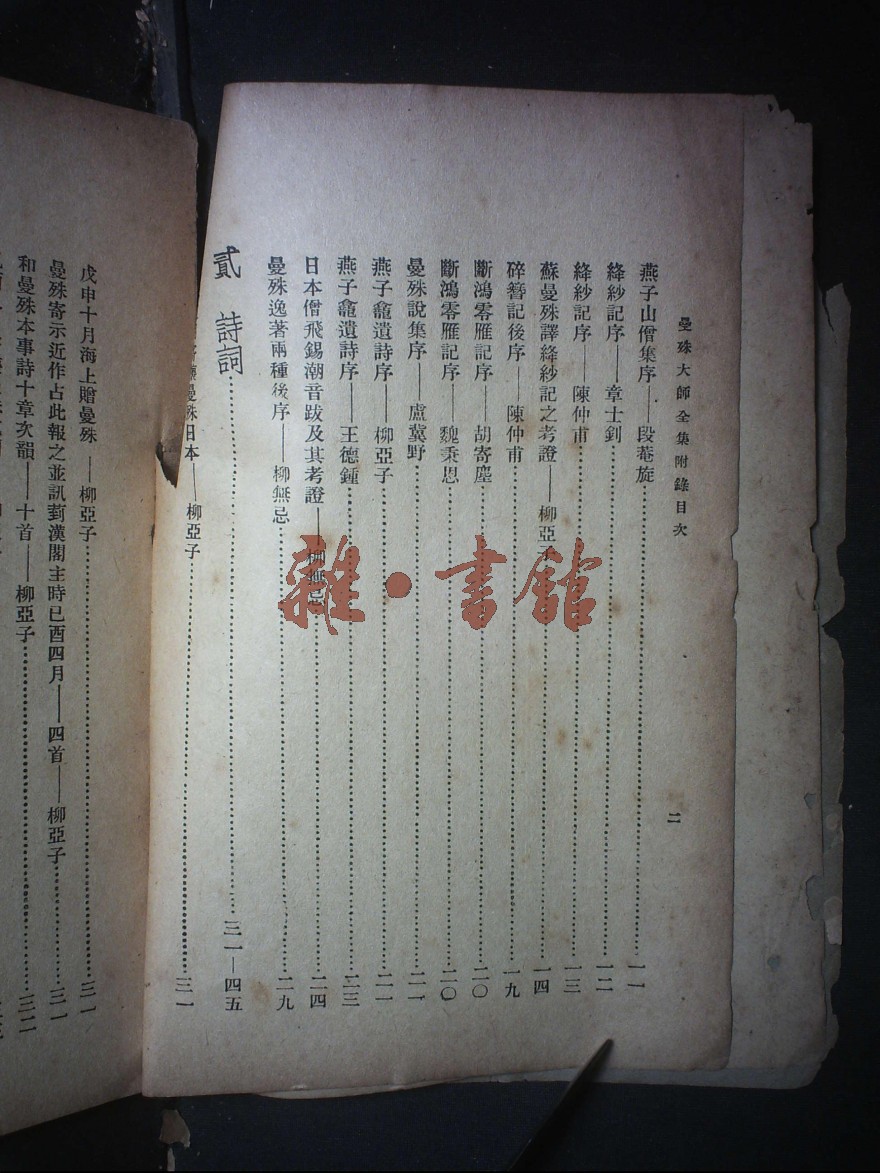 曼殊大師全集附錄目次
二
燕子山僧集序——段菴旋……一一
絳紗記序——章士釗……一二
絳紗記序——陳仲甫……一三
蘇曼殊譯絳紗記之考證——柳亞子……一四
碎簪記後序——陳仲甫……一九
斷鴻零雁記序——胡寄塵……二〇
斷鴻零雁記序——魏秉恩……二〇
曼殊說集序——盧冀野……二一
燕子龕遺詩序——柳亞子……二一
燕子龕遺詩序——王德鍾……二三
日本僧飛錫潮音跋及其考證——柳無忌……二四
曼殊逸著兩種後序——柳無忌……二九
貳 詩詞……三一—四五
曼殊日本——柳亞子……三一
戊申十月海上贈曼殊——柳亞子……三一
曼殊寄示近作占此報之並訊漢閣主時已酉四月——四首——柳亞子……三一
和曼殊本事詩十章次韻——十首——柳亞子……三二
雜·書館